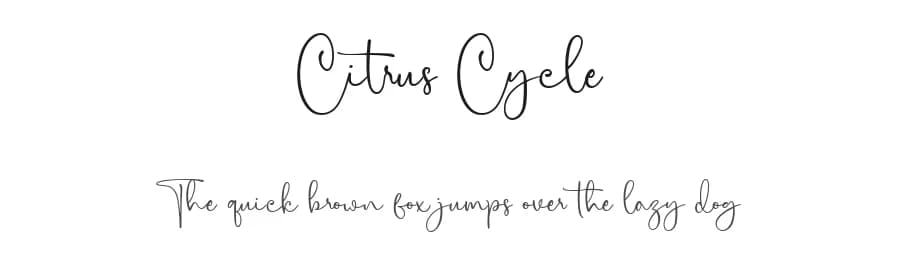 Citrus Cycle
The quick brown fox jumps over the lazy dog